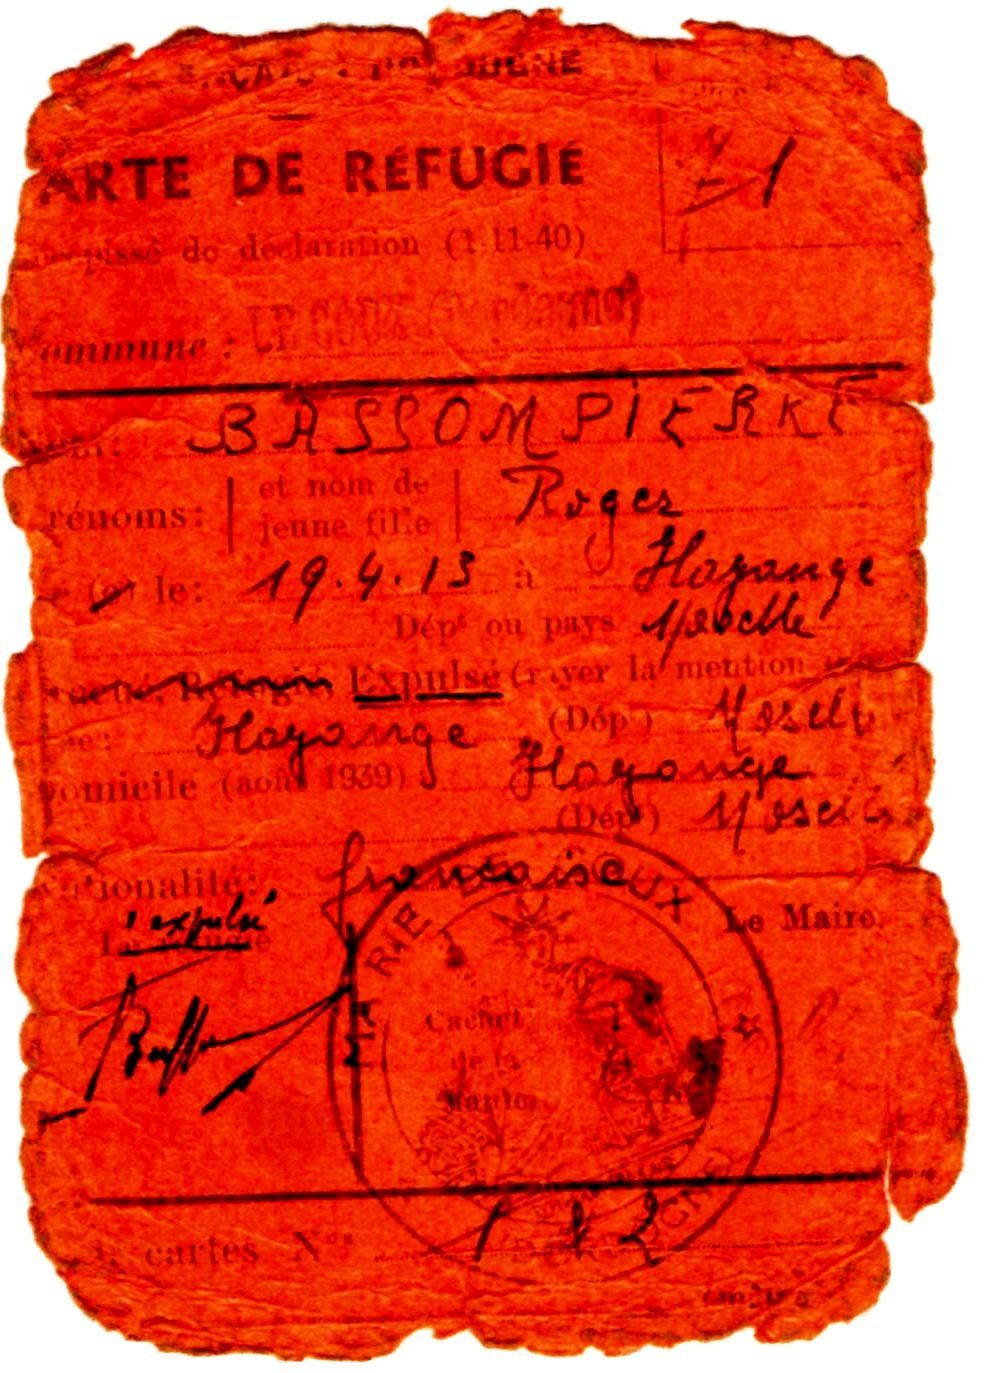 ARTE DE RÉFUGIÉ
- 1
pissé de déclaration (1-11-40)
ommune : LE COUX (Dordogne)
BASSOMPIERRE
rénoms: et nom de jeune fille Roger
le: 19.4.13 à Hayange
Dépt ou pays Moselle
Réfugié, Expulsé (rayer la mention
Hayange (Dépt) Moselle
omicile (août 1939) Hayange
(Dépt) Moselle
ationalité: française
l'expulsé
Le réfugié
Le Maire,
MAIRIE COUX
Cachet
de la
Mairie
cartes Nos 1 & 2